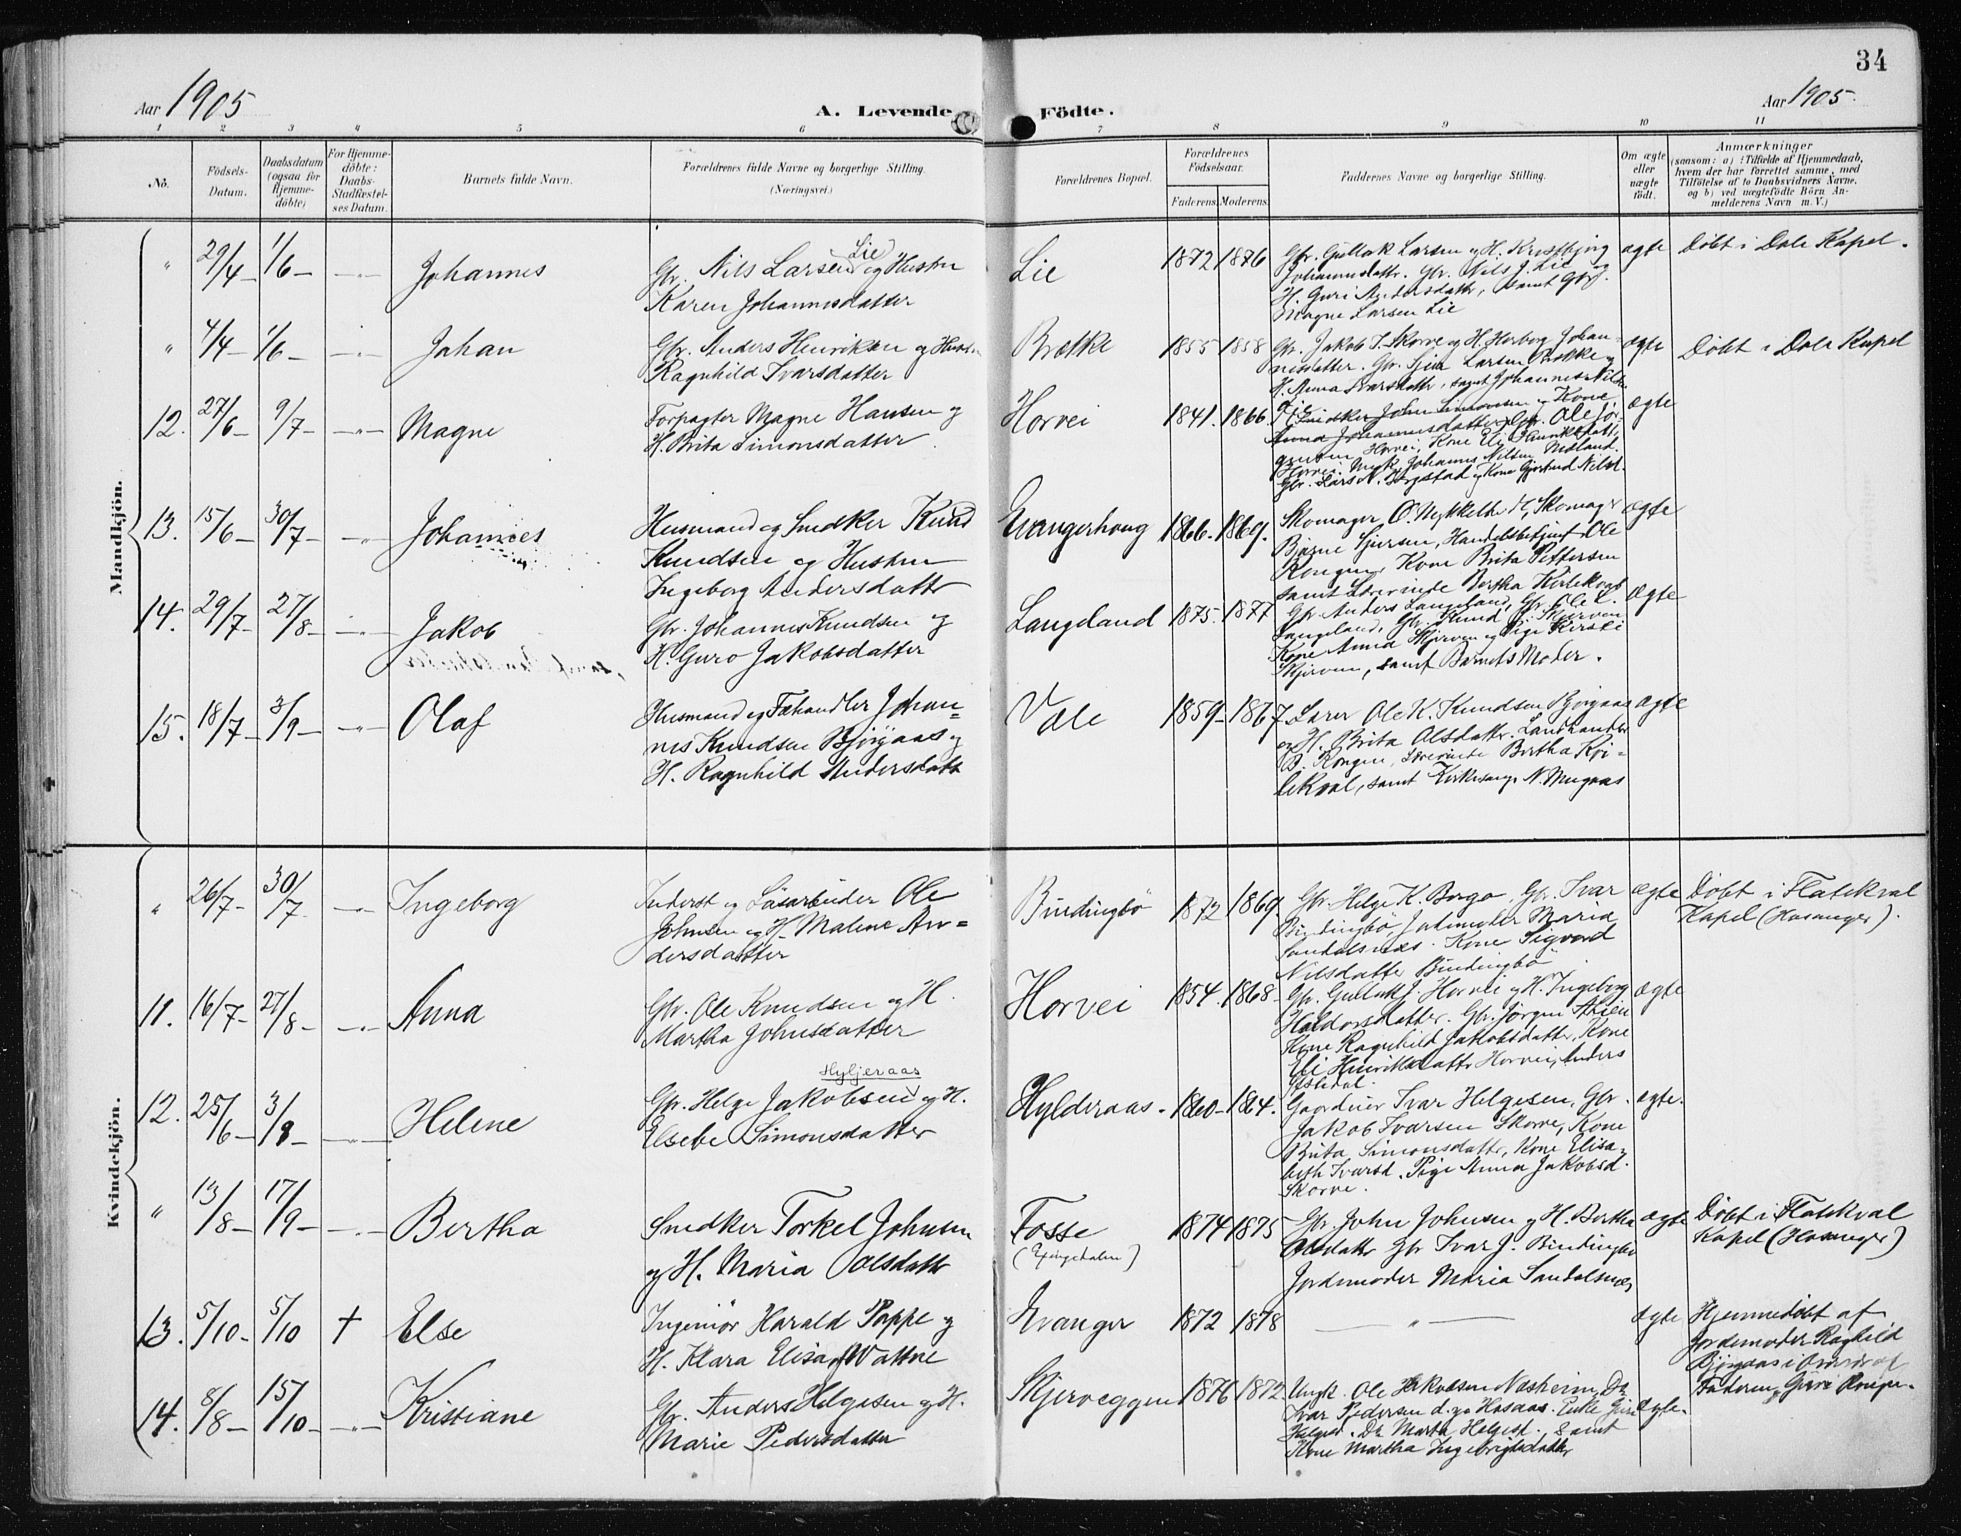 34
Aar 1905
A. Levende Födte.
Aar 1905.
1 2 3 4 5 6 7 8 9 10 11
No.
Födsels-
Datum.
Daabsdatum
(ogsaa for
Hjemme-
döbte)
For Hjemme-
döbte:
Daabs-
Stadfæstel-
ses Datum.
Barnets fulde Navn.
Forældrenes fulde Navne og borgerlige Stilling.
(Næringsvei.)
Forældrenes Bopæl.
Forældrenes
Födselsaar.
Faderens. Moderens.
Faddernes Navne og borgerlige Stilling.
Om ægte
eller
uægte
födt.
Anmærkninger
(saasom: a) i Tilfælde af Hjemmedaab,
hvem der har forrettet samme, med
Tilföielse af to Daabsvidners Navne,
og b) ved uægtefödte Börn An-
melderens Navn m. V.)
Mandkjön.
" 29/4 1/6 Johannes
Gbr. Nils Larsen Lie og Hustru
Karen Johannesdatter
Lie 1872 1876
Gbr. Gullak Larsen og H.
Johannesdatter. Gbr. Nils J. Lie og
H. Guri Andersdatter, samt Gbr.
Magne Larsen Lie
ægte
Döbt i Dale Kapel.
" 4/4 1/6 Johan
Gbr. Anders Henriksen og Hustru
Ragnhild Ivarsdatter
Brække 1855 1858
Gbr. Jakob I. Skorve og H. Herborg Johan-
nesdatter. Gbr. Larsen og
H. Anna Ivarsdatter, samt Johannes Nils
ægte
Döbt i Dale Kapel
12. 27/6 9/7 Magne
Forpagter Magne Hansen og
H. Brita Simonsdatter.
Horvei 1841. 1866
Snedker John Simonsen og Kone
Anna Johannesdatter, Gbr. Ole Jör-
gensen Horvei, Kone Eli Henriksdatter
Horvei. Johannes Nilsen Nedland.
Gbr. Lars N. og Kone Gjertrud Nilsd.
ægte
13. 15/6 30/7 Johannes
Husmand og Snedker Knud
Knudsen og Hustru
Ingeborg Andersdatter
Evangerhaug 1866. 1869.
Skomager O. Mykkeltv. H, Skomager
Bjarne Sjursen, Handelsbetjent Ole
Kongen, Kone Brita Pettersen
samt Lærerinde Bertha
ægte
14. 29/7 27/8 Jakob
Gbr. Johannes Knudsen og
H. Guro Jakobsdatter
Langeland 1875. 1877
Gbr. Anders Langeland, Gbr. Ole L.
Langeland, Gbr. Knud J. Skjerven
Kone Anna Skjerven og Pige
Skjerven, samt Barnets Moder.
ægte
15. 18/7 3/9 Olaf
Husmand og Fæhandler Johan-
nes Knudsen Björgaas og
H. Ragnhild Andersdatt
Væle 1859 1867
Lærer Ole K. Knudsen Björgaas
og H. Brita Olsdatter. Landhandler
B. Kongen, Lærerinde Bertha Kji-
lekval, samt Kirkesanger N. Mugaas
ægte
Kvindekjön.
" 26/7 30/7 Ingeborg
Inderst og Lösarbeider Ole
Johnsen og H. Malene An-
dersdatter
Bindingbö 1872 1869
Gbr. Helge K. Bergo. Gbr. Ivar
Bindingbö, Jordmoder Maria
Sandalsnæs. Kone Sigvord
Nilsdatter Bindingbö
ægte
Döbt i Flatekval
Kapel (Hosanger).
11. 16/7 27/8 Anna
Gbr. Ole Knudsen og H.
Martha Johnsdatter
Horvei 1854. 1868
Gbr. Gullak J. Horvei og H. Ingeborg
Haldorsdatter. Gbr. Jörgen
Kone Ragnhild Jakobsdatter, Kone
Eli Henriksdatter Horvei, Anders
ægte
12. 25/6 3/9 Helene
Hyljeraas
Gbr. Helge Jakobsen og H.
Elsebe Simonsdatter
Hylderaas 1860 1864.
Gaardbruger Ivar Helgesen, Gbr.
Jakob Ivarsen Skorve, Kone
Brita Simonsdatter, Kone Elisa-
beth Ivarsd. Pige Anna Jakobsd.
Skorve.
ægte.
" 13/8 17/9 Bertha
Snedker Torkel Johnsen
og H. Maria Olsdatter
Fosse
(Exingedalen)
1874 1875
Gbr. John Johnsen og H. Bertha
Olsdatter Gbr Ivar J. Bindingbö
Jordemoder Maria Sandalsnes
ægte
Döbt i Flatekval
Kapel (Hosanger)
13. 5/10 5/10 + Else
Ingeniör Harald Poppe og
H. Klara Elisa Wattne
Evanger 1872 1878
ægte
Hjemmedöbt af
Jordemoder Raghild
Björgaas i Overvær af
Faderen og Guri
14. 8/8 15/10 Kristiane
Gbr. Anders Helgesen og H.
Marie Pedersdatter
Skjerveggen 1876 1872
Ungk. Ole Jakobsen Næsheim, Do
Ivar Pedersen d.y. Hosaas. Enke Guri
Helgesd. Do Martha Helgesd., samt
Kone Martha Ingebrigtsdatter
ægte.